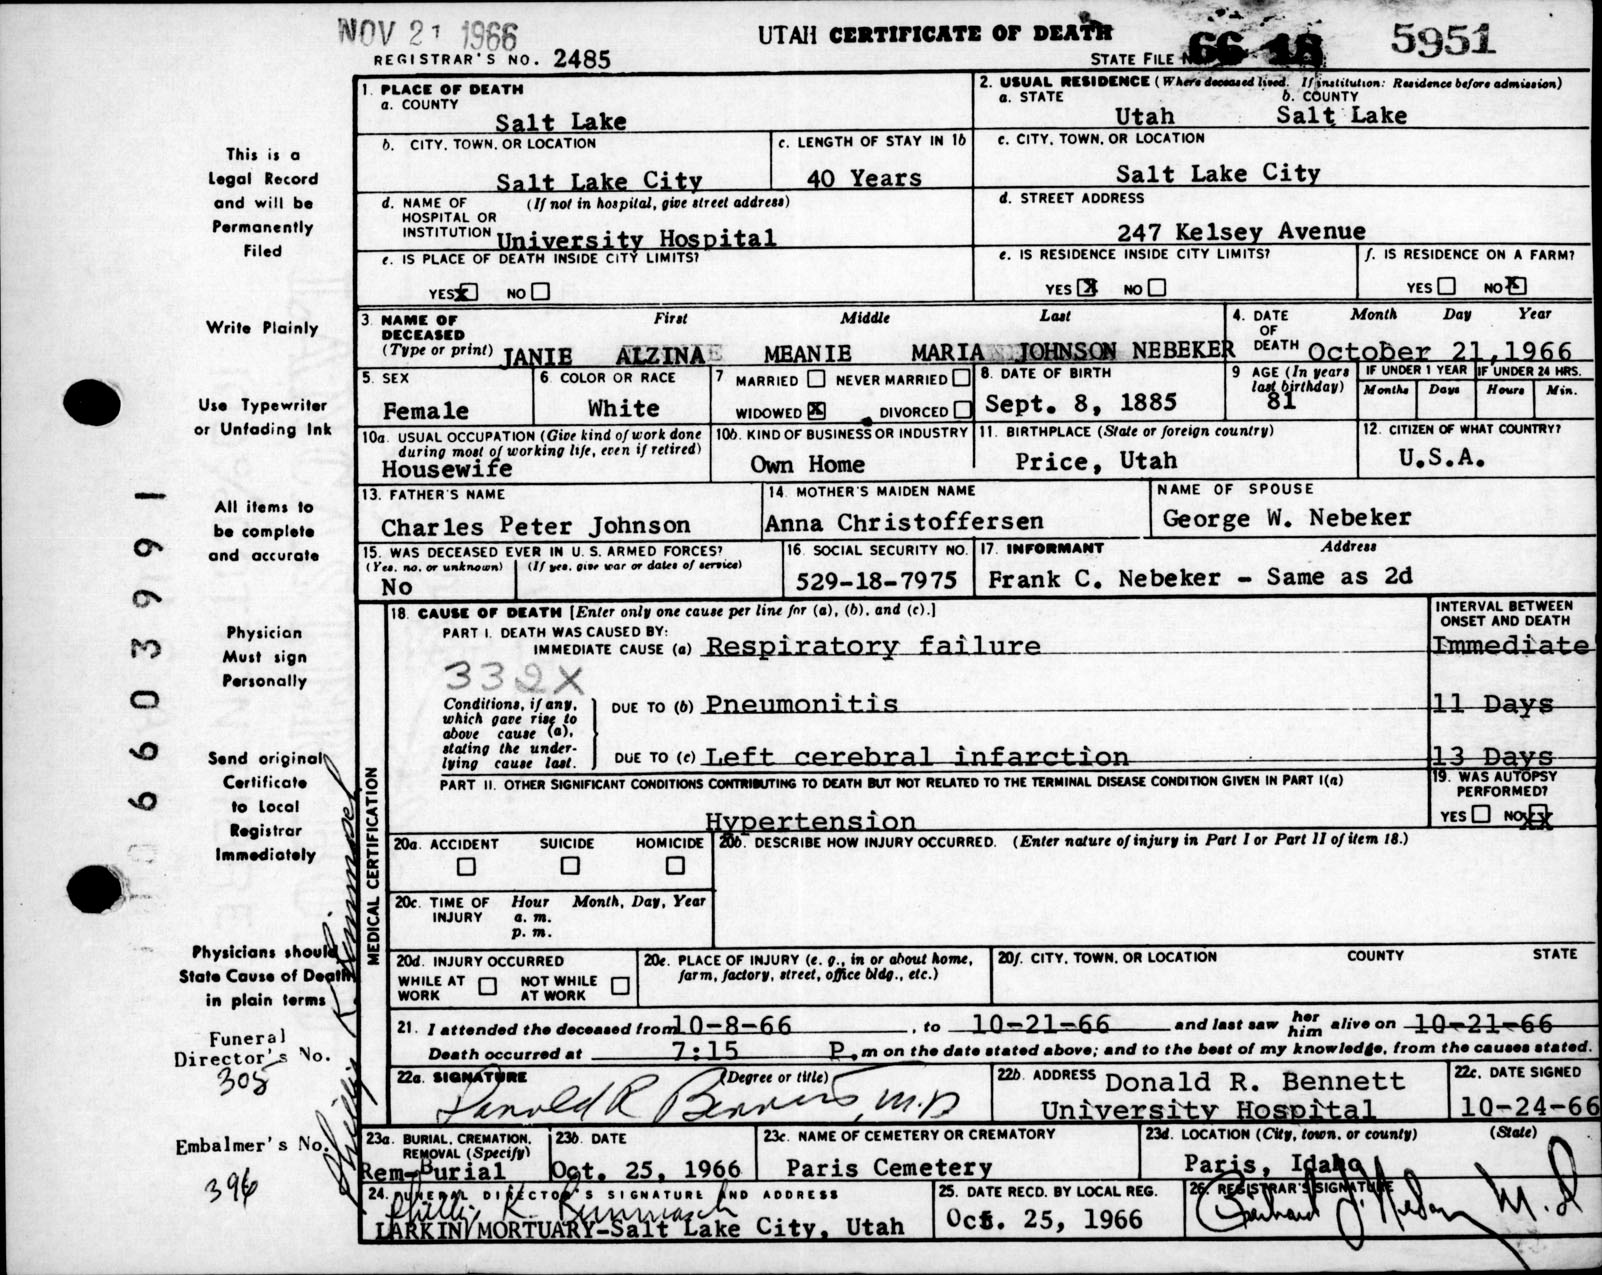 NOV 21 1966
UTAH CERTIFICATE OF DEATH
REGISTRAR'S NO. 2485
STATE FILE 66 18 5951
This is a
Legal Record
and will be
Permanently
Filed
Write Plainly
Use Typewriter
or Unfading Ink
All items to
be complete
and accurate
Physician
Must sign
Personally
Send original
Certificate
to Local
Registrar
Immediately
Physicians should
State Cause of Death
in plain terms
Funeral
Director's No.
305
Embalmer's No.
396
6603991
1. PLACE OF DEATH
a. COUNTY
Salt Lake
2. USUAL RESIDENCE (Where deceased lived. If institution: Residence before admission)
a. STATE b. COUNTY
Utah Salt Lake
b. CITY, TOWN, OR LOCATION
Salt Lake City
c. LENGTH OF STAY IN 1b
40 Years
c. CITY, TOWN, OR LOCATION
Salt Lake City
d. NAME OF (If not in hospital, give street address)
HOSPITAL OR
INSTITUTION University Hospital
d. STREET ADDRESS
247 Kelsey Avenue
e. IS PLACE OF DEATH INSIDE CITY LIMITS?
YES X NO
e. IS RESIDENCE INSIDE CITY LIMITS?
YES X NO
f. IS RESIDENCE ON A FARM?
YES NO X
3. NAME OF First Middle Last
DECEASED
(Type or print) JANIE ALZINA MEANIE MARIA JOHNSON NEBEKER
4. DATE Month Day Year
OF
DEATH October 21, 1966
5. SEX
Female
6. COLOR OR RACE
White
7 MARRIED NEVER MARRIED
WIDOWED X DIVORCED
8. DATE OF BIRTH
Sept. 8, 1885
9 AGE (In years
last birthday)
81
IF UNDER 1 YEAR
Months Days
IF UNDER 24 HRS.
Hours Min.
10a. USUAL OCCUPATION (Give kind of work done
during most of working life, even if retired)
Housewife
10b. KIND OF BUSINESS OR INDUSTRY
Own Home
11. BIRTHPLACE (State or foreign country)
Price, Utah
12. CITIZEN OF WHAT COUNTRY?
U.S.A.
13. FATHER'S NAME
Charles Peter Johnson
14. MOTHER'S MAIDEN NAME
Anna Christoffersen
NAME OF SPOUSE
George W. Nebeker
15. WAS DECEASED EVER IN U. S. ARMED FORCES?
(Yes, no, or unknown) (If yes, give war or dates of service)
No
16. SOCIAL SECURITY NO.
529-18-7975
17. INFORMANT Address
Frank C. Nebeker - Same as 2d
MEDICAL CERTIFICATION
18. CAUSE OF DEATH [Enter only one cause per line for (a), (b), and (c).]
PART I. DEATH WAS CAUSED BY:
IMMEDIATE CAUSE (a) Respiratory failure
332X
Conditions, if any,
which gave rise to
above cause (a),
stating the under-
lying cause last.
DUE TO (b) Pneumonitis
DUE TO (c) Left cerebral infarction
INTERVAL BETWEEN
ONSET AND DEATH
Immediate
11 Days
13 Days
PART II. OTHER SIGNIFICANT CONDITIONS CONTRIBUTING TO DEATH BUT NOT RELATED TO THE TERMINAL DISEASE CONDITION GIVEN IN PART I(a)
Hypertension
19. WAS AUTOPSY
PERFORMED?
YES NO XX
20a. ACCIDENT SUICIDE HOMICIDE
20b. DESCRIBE HOW INJURY OCCURRED. (Enter nature of injury in Part I or Part II of item 18.)
20c. TIME OF Hour Month, Day, Year
INJURY a. m.
p. m.
20d. INJURY OCCURRED
WHILE AT NOT WHILE
WORK AT WORK
20e. PLACE OF INJURY (e. g., in or about home,
farm, factory, street, office bldg., etc.)
20f. CITY, TOWN, OR LOCATION COUNTY STATE
21. I attended the deceased from 10-8-66, to 10-21-66 and last saw her him alive on 10-21-66
Death occurred at 7:15 P.m on the date stated above; and to the best of my knowledge, from the causes stated.
22a. SIGNATURE (Degree or title)
Donald R Bennett, M.D
22b. ADDRESS Donald R. Bennett
University Hospital
22c. DATE SIGNED
10-24-66
23a. BURIAL, CREMATION,
REMOVAL (Specify)
Rem-Burial
23b. DATE
Oct. 25, 1966
23c. NAME OF CEMETERY OR CREMATORY
Paris Cemetery
23d. LOCATION (City, town, or county) (State)
Paris, Idaho
24. FUNERAL DIRECTOR'S SIGNATURE AND ADDRESS
LARKIN MORTUARY-Salt Lake City, Utah
25. DATE RECD. BY LOCAL REG.
Oct. 25, 1966
26. REGISTRAR'S SIGNATURE
M.D